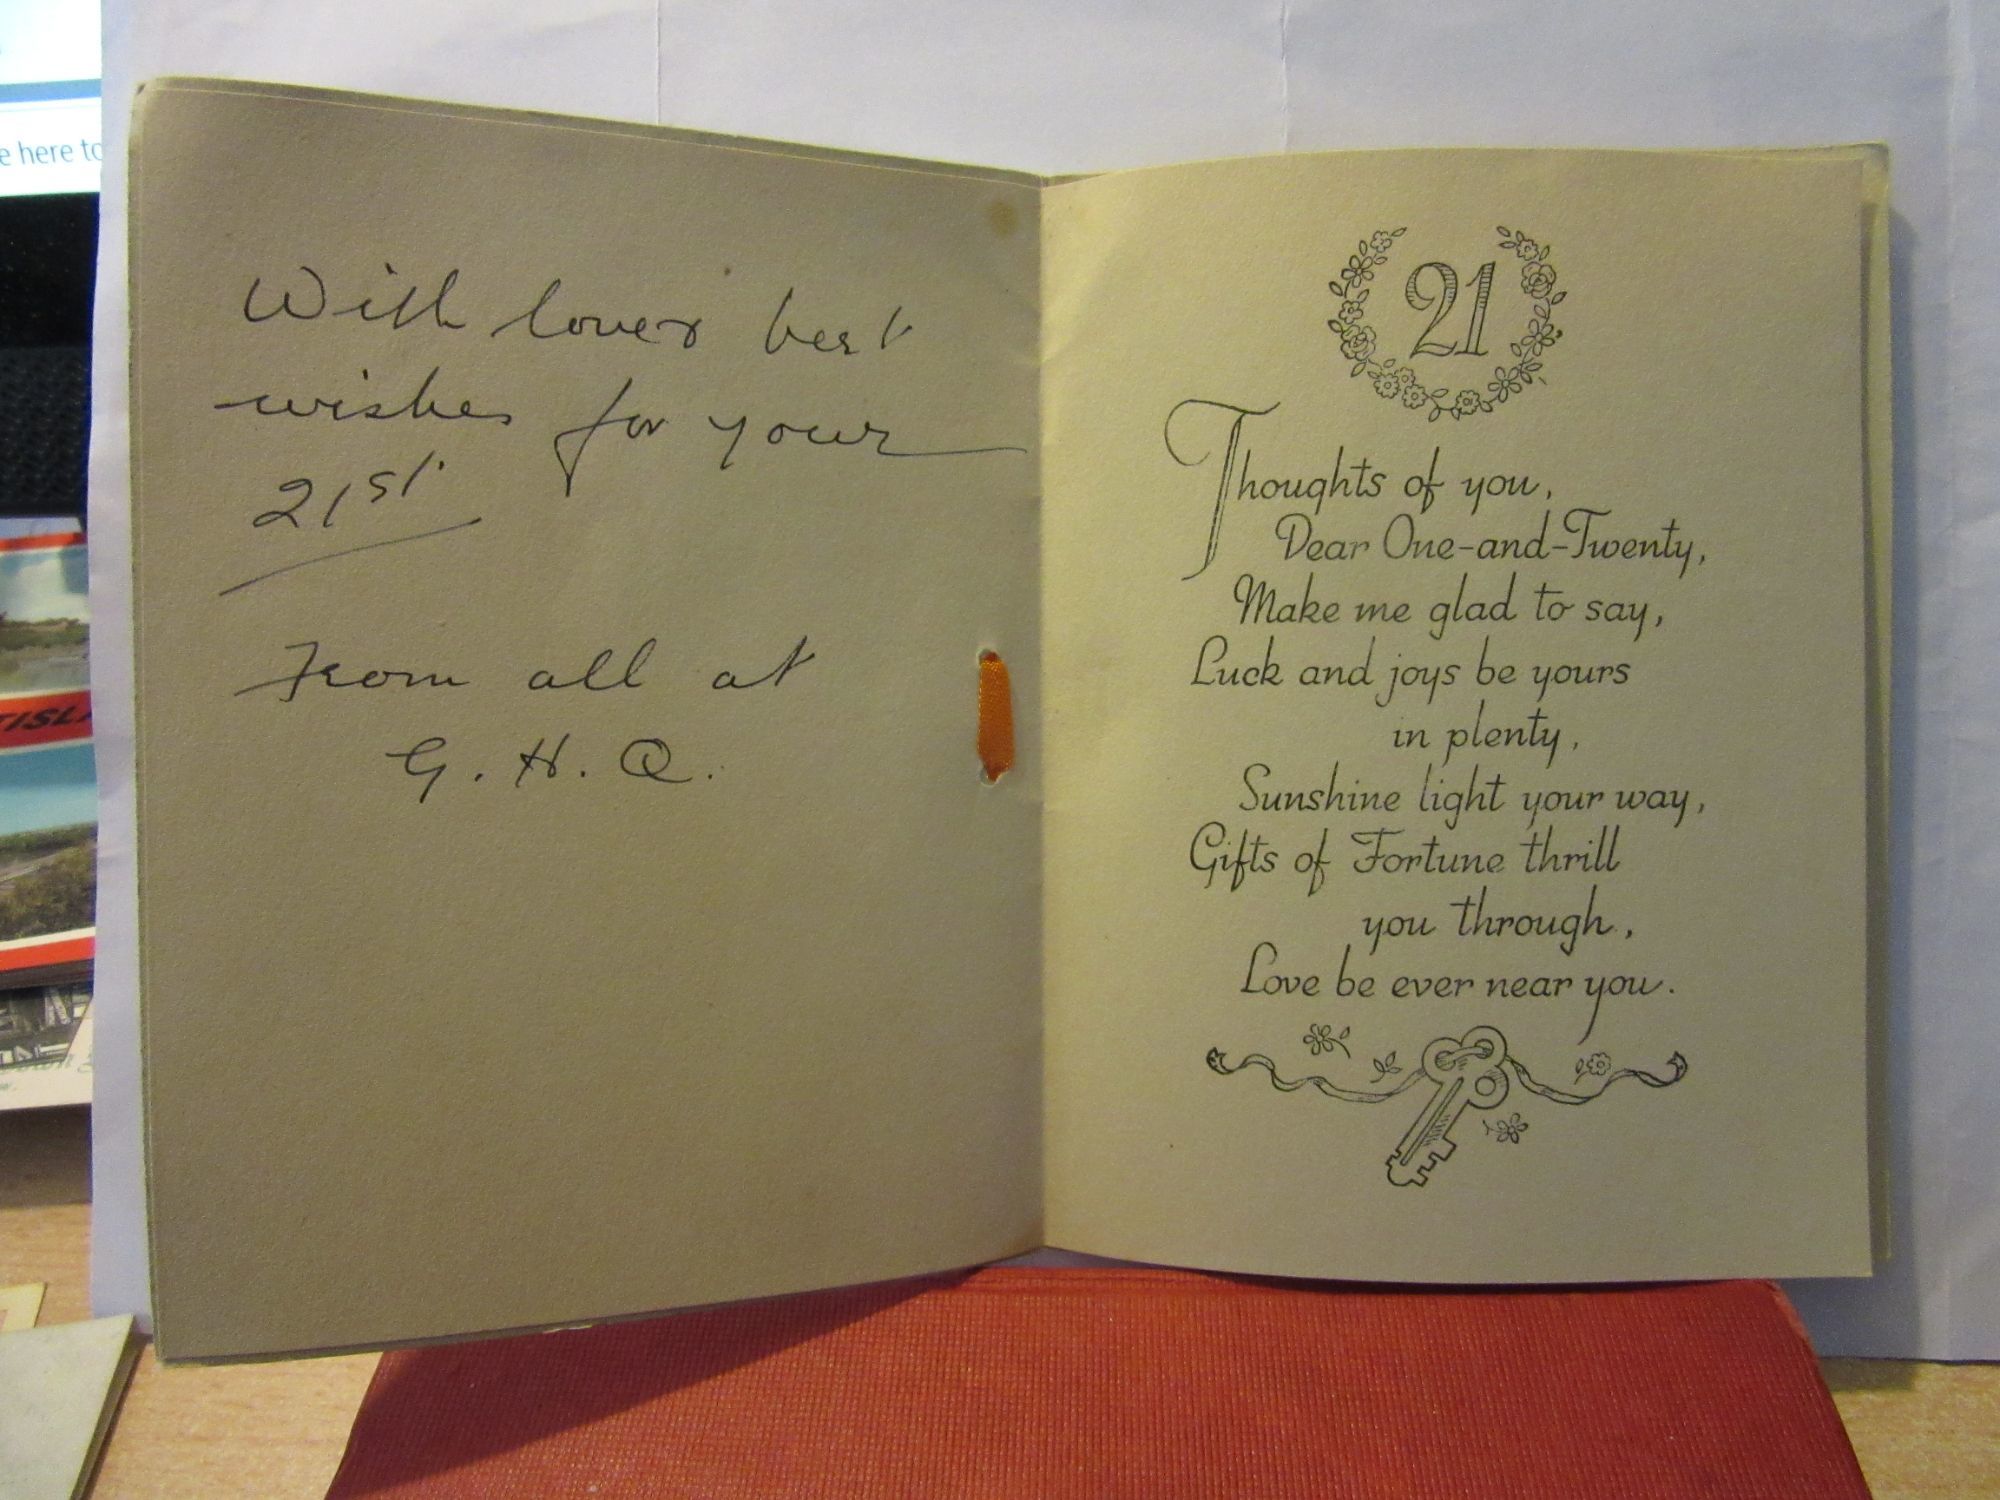 With love & best
wishes for your
21st
From all at
G. H. Q.
21
Thoughts of you,
Dear One-and-Twenty,
Make me glad to say,
Luck and joys be yours
in plenty,
Sunshine light your way,
Gifts of Fortune thrill
you through,
Love be ever near you.
e here to
TISLA